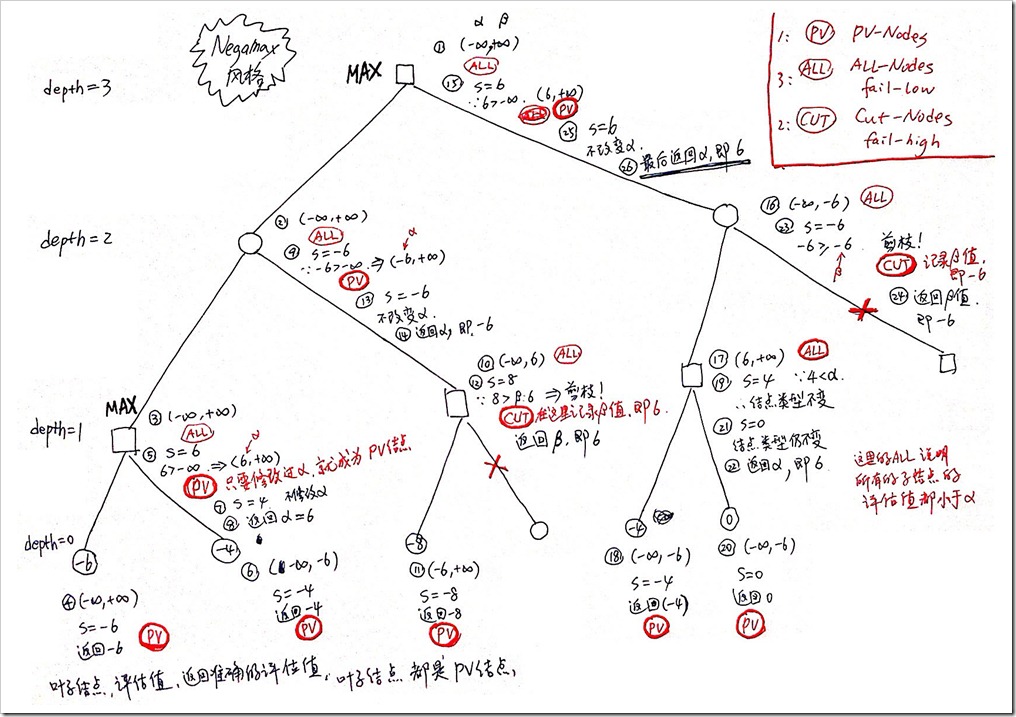 Negamax
风格
α β
① (-∞,+∞)
ALL
MAX
⑮ s=6
∵6>-∞. (6,+∞)
ALL PV
㉕ s=6
不改变α.
㉖ 最后返回α,即6
1: PV PV-Nodes
3: ALL ALL-Nodes
fail-low
2: CUT Cut-Nodes
fail-high
depth=3
depth=2
② (-∞,+∞)
ALL
α
⑨ s=-6
∵-6>-∞.⇒(-6,+∞)
PV
⑬ s=-6
不改变α.
⑭ 返回α,即-6
⑯ (-∞,-6) ALL
㉓ s=-6
-6≥-6
β
剪枝!
CUT 记录β值,
即-6
㉔ 返回β值.
即-6
MAX
depth=1
③ (-∞,+∞)
ALL
α
⑤ s=6
6>-∞⇒(6,+∞)
PV 只要修改过α,就成为PV结点
⑦ s=4 不修改α
⑧ 返回α=6
⑩ (-∞,6) ALL
⑫ s=8
∵8>β:6⇒剪枝!
CUT 在这里记录β值,即6.
返回β,即6
⑰ (6,+∞) ALL
⑲ s=4 ∵4<α.
∴结点类型不变
㉑ s=0
结点类型仍不变
㉒ 返回α,即6.
这里的ALL说明
所有的子结点的
评估值都小于α
depth=0
-6
④(-∞,+∞)
s=-6
返回-6
PV
-4
⑥ (-∞,-6)
s=-4
返回-4
PV
-8
⑪(-6,+∞)
s=-8
返回-8
PV
-4
⑱ (-∞,-6)
s=-4
返回(-4)
PV
0
⑳ (-∞,-6)
s=0
返回0
PV
叶子结点,评估值,返回准确的评估值,叶子结点都是PV结点,